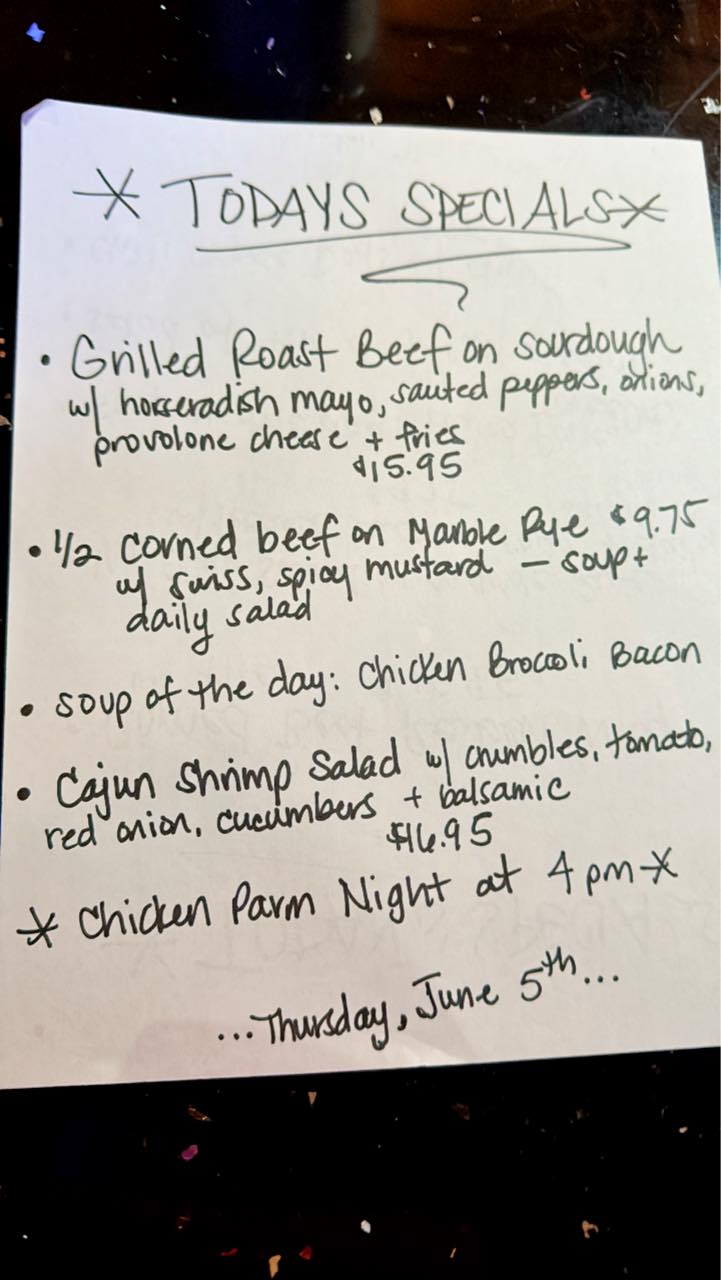 * TODAYS SPECIALS *
• Grilled Roast Beef on sourdough
w/ horseradish mayo, sauted peppers, onions,
provolone cheese + fries
$15.95
• 1/2 corned beef on Marble Rye $9.75
w/ swiss, spicy mustard - soup +
daily salad
• soup of the day: Chicken Broccoli Bacon
• Cajun Shrimp Salad w/ crumbles, tomato,
red onion, cucumbers + balsamic
$16.95
* Chicken Parm Night at 4pm *
...Thursday, June 5th...